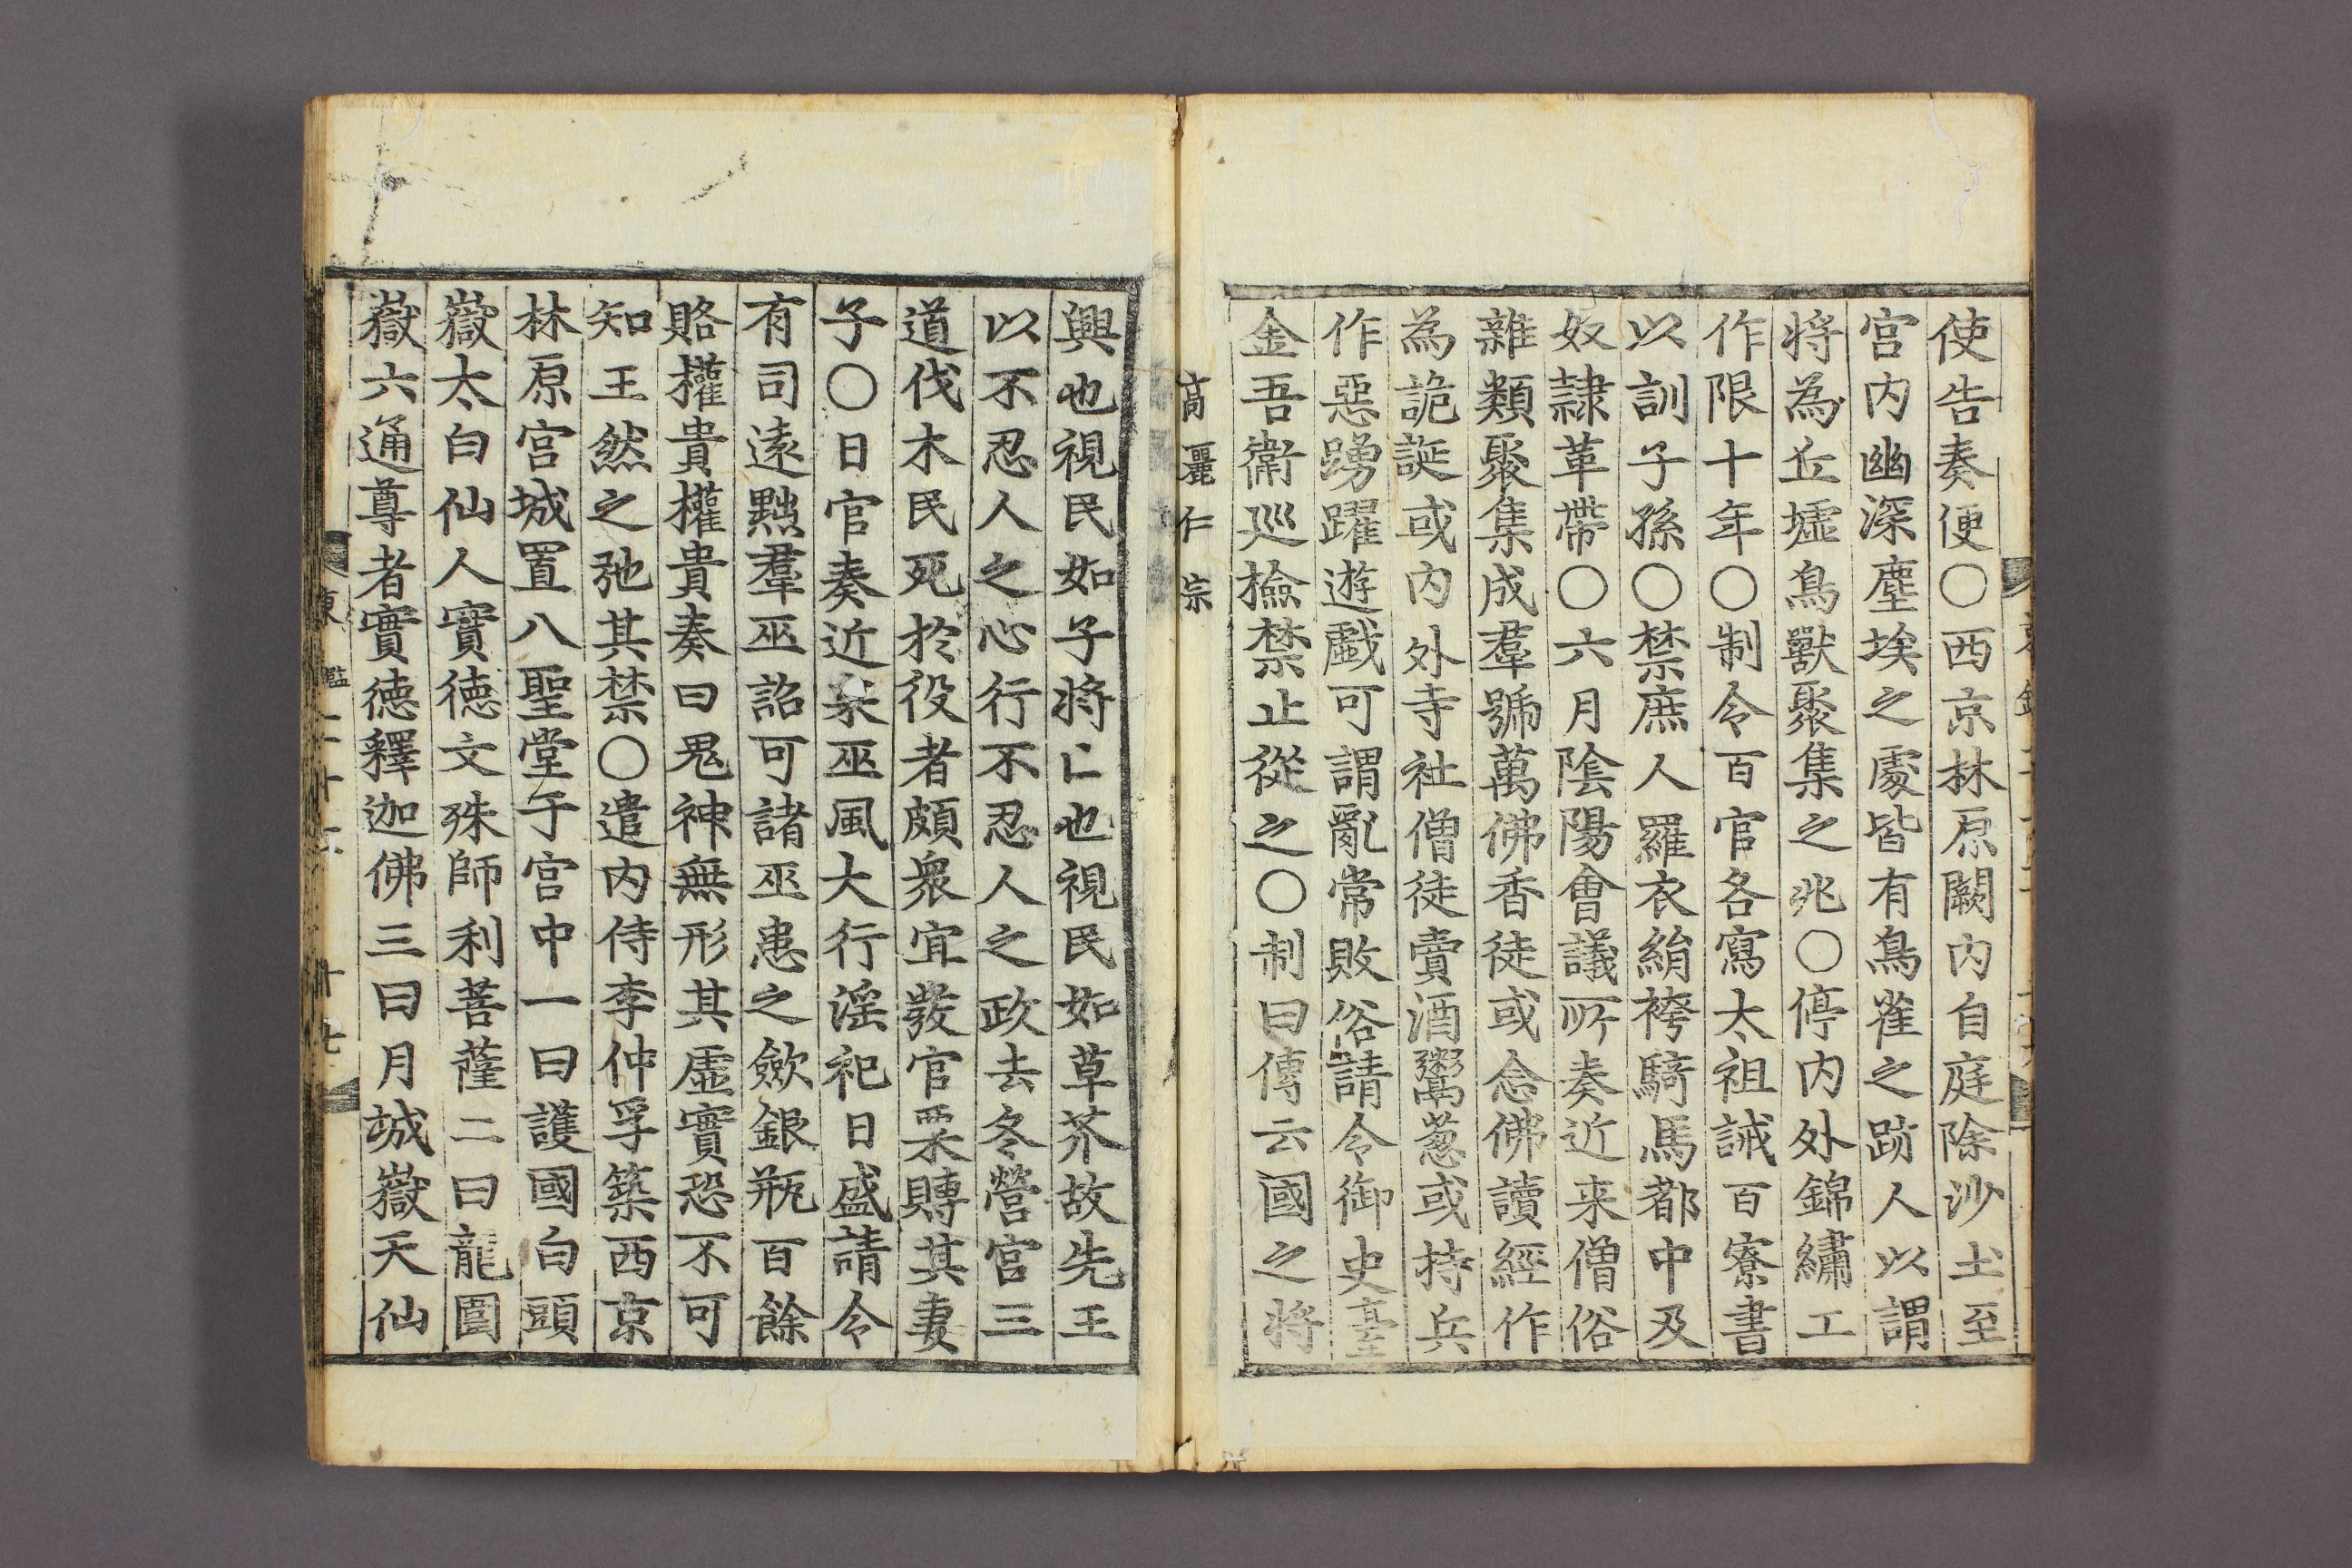 使告奏便〇西京林原闕内自庭除沙土至
宫内幽深塵埃之處皆有鳥雀之跡人以謂
将為丘墟鳥獸聚集之兆〇停内外錦繡工
作限十年〇制令百官各寫太祖誡百寮書
以訓子孫〇禁庶人羅衣絹袴騎馬都中及
奴隷革帶〇六月陰陽會議所奏近来僧俗
雜類聚集成羣號萬佛香徒或念佛讀經作
為詭誕或内外寺社僧徒賣酒鬻葱或持兵
作惡踴躍遊戯可謂亂常敗俗請令御史臺
金吾衛巡撿禁止從之〇制曰傳云國之將
高麗仁宗
興也視民如子將亡也視民如草芥故先王
以不忍人之心行不忍人之政去冬營宫三
道伐木民死於役者頗衆宜發官粟賻其妻
子〇日官奏近来巫風大行淫祀日盛請令
有司遠黜羣巫詔可諸巫患之歛銀瓶百餘
賂權貴權貴奏曰鬼神無形其虛實恐不可
知王然之弛其禁〇遣内侍李仲孚築西京
林原宫城置八聖堂于宫中一曰護國白頭
嶽太白仙人實德文殊師利菩薩二曰龍圍
嶽六通尊者實德釋迦佛三曰月城嶽天仙
東